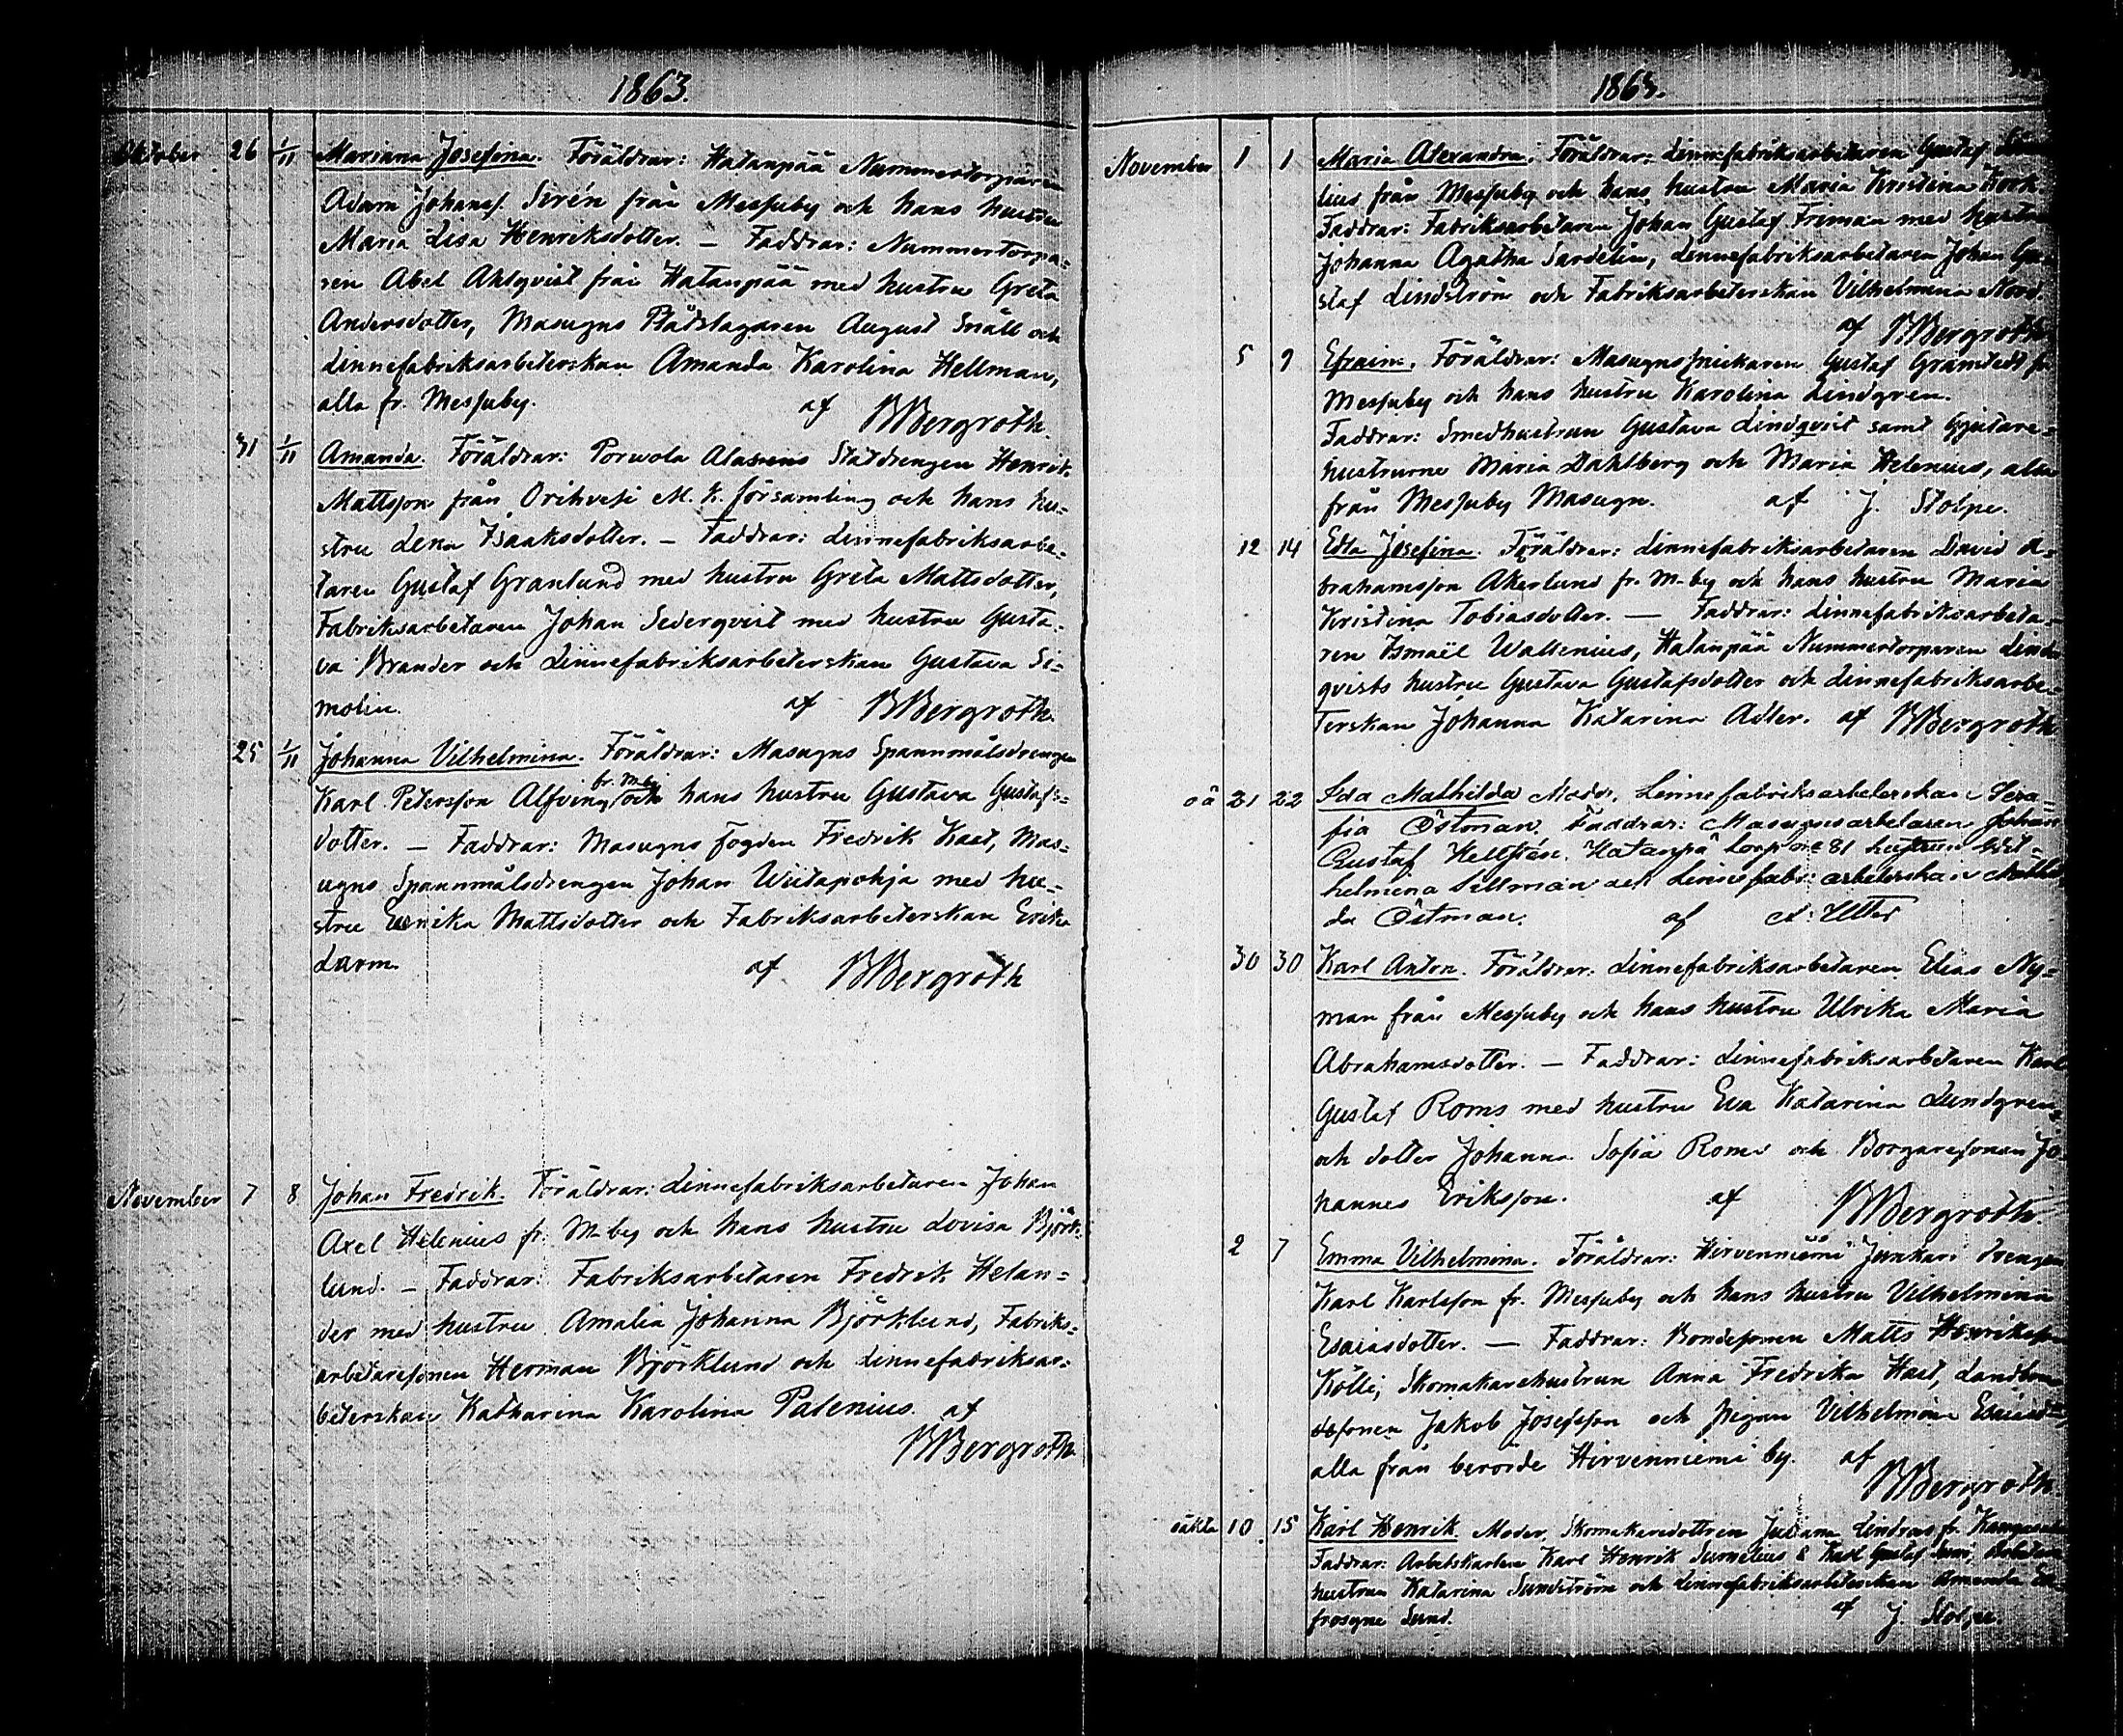 1863.
Oktober 26 1/11 Mariana Josefina. Föräldrar: Hatanpää Nummertorparen
Adam Johansf. Sirén från Messuby och hans hustru
Maria Lisa Henriksdotter. — Faddrar: Nummertorpa-
ren Abel Ahlqvist från Hatanpää med hustru Greta
Andersdotter, Masugns Plåtslagaren August Snäll och
Linnefabriksarbeterskan Amanda Karolina Hellman,
alla fr. Messuby. af BBergroth.
31 1/11 Amanda. Föräldrar: Porwola Statdrengen Henrik
Mattsson från Orihvesi M. k. församling och hans hu-
stru Lena Isaaksdotter. — Faddrar: Linnefabriksarbe-
taren Gustaf Granlund med hustru Greta Mattsdotter,
Fabriksarbetaren Johan Sederqvist med hustru Gusta-
va Brander och Linnefabriksarbeterskan Gustava Si-
molin. af BBergroth.
25 1/11 Johanna Vilhelmina. Föräldrar: Masugns Spannmålsdrengen
Karl Petersson Alfving fr. M-by och hans hustru Gustava Gustafs-
dotter. — Faddrar: Masugns fogden Fredrik Kast, Mas-
ugns Spannmålsdrengen Johan Wiitapohja med hu-
stru Enrika Mattsdotter och Fabriksarbeterskan Erika
Larm. af BBergroth
November 7 8 Johan Fredrik. Föräldrar: Linnefabriksarbetaren Johan
Axel Helenius fr. M-by och hans hustru Lovisa Björk-
lund. — Faddrar: Fabriksarbetaren Fredrik Helan-
der med hustru Amalia Johanna Björklund, Fabriks-
arbetaresonen Herman Björklund och Linnefabriksar-
beterskan Katharina Karolina Palenius. af
BBergroth
1863.
November 1 1 Maria Alexandra. Föräldrar: Linnefabriksarbetaren Gustaf
lius från Messuby och hans hustru Maria Kristina
Faddrar: Fabriksarbetaren Johan Gustaf Friman med hustru
Johanna Agatha Sardelin, Linnefabriksarbetaren Johan Gu-
staf Lindström och Fabriksarbeterskan Vilhelmina Nord.
af BBergroth
5 9 Efraim. Föräldrar: Masugnssnickaren Gustaf Gramstedt fr
Messuby och hans hustru Karolina Lindgren.
Faddrar: Smedhustrun Gustava Lindqvist samt Gjutare-
hustrurne Maria Dahlberg och Maria Helenius, alla
från Messuby Masugn. af J. Stolpe.
12 14 Edla Josefina. Föräldrar: Linnefabriksarbetaren David A-
brahamsson Åkerlund fr. M-by och hans hustru Maria
Kristina Tobiasdotter. — Faddrar: Linnefabriksarbeta-
ren Ismaël Wallenius, Hatanpää Nummertorparen Lind-
qvists hustru Gustava Gustafsdotter och Linnefabriksarbe-
terskan Johanna Katarina Adler. af BBergroth
oä 21 22 Ida Mathilda Moder, Linnefabriksarbeterskan Sera-
fia Östman, Faddrar: Masugnsarbetaren Johan
Gustaf Hellstén, Hatanpä torp No 81 hustrun Wil-
helmina Sillman och Linnefabr: arbeterskan Mathil-
da Östman. af A: Utter
30 30 Karl Anton. Föräldrar: Linnefabriksarbetaren Elias Ny-
man från Messuby och hans hustru Ulrika Maria
Abrahamsdotter. — Faddrar: Linnefabriksarbetaren Karl
Gustaf Roms med hustru Eva Katarina Lundgren,
och dotter Johanna Sofia Roms och Borgaresonen Jo-
hannes Eriksson. af BBergroth.
2 7 Emma Vilhelmina. Föräldrar: Hirvenniemi Junkari drengen
Karl Karlsson fr. Messuby och hans hustru Vilhelmina
Esaiasdotter. — Faddrar: Bondesonen Matts Henriksson
Kölli, Skomakarehustrun Anna Fredrika Hast, Landbon-
desonen Jakob Josefsson och pigan Vilhelmina Esaiasd-
alla från berörde Hirvenniemi by. af
BBergroth
oäkta 10 15 Karl Henrik. Moder, Skomakaredottren Juliana Lindroos fr. Kangasala
Faddrar: Arbetskarlen Karl Henrik Sumelius & Karl Gustaf
hustrun Katarina Sundström och Linnefabriksarbeterskan Amanda Eu-
frosyne Sund. af J. Stolpe.